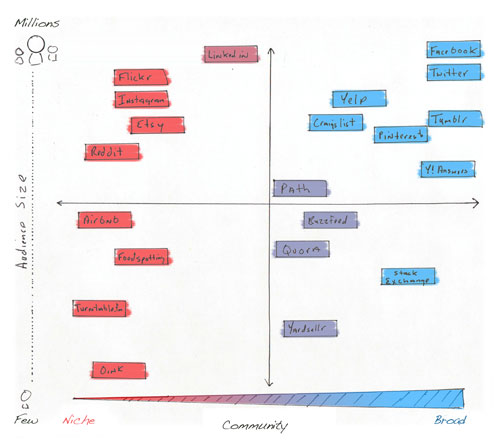 Millions
Linkedin
Facebook
Flickr
Twitter
Instagram
Yelp
Etsy
Craigslist
Tumblr
Pinterest
Reddit
Y! Answers
Path
Airbnb
Buzzfeed
Foodspotting
Quora
Stack
Exchange
Turntable.fm
Yardsellr
Oink
Audience Size
Few
Niche
Community
Broad